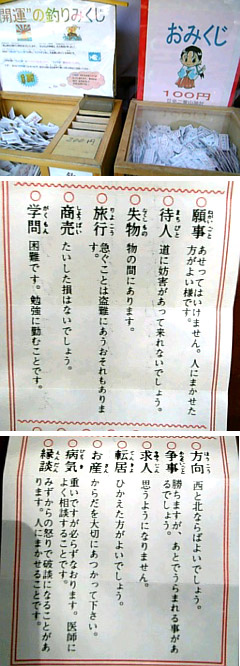 開運"の釣りみくじ
200円
おみくじ
100円
○願事 ねがいごと
あせってはいけません。人にまかせた
方がよい様です。
○待人 まちびと
道に妨害があって来れないでしょう。
○失物 うせもの
物の間にあります。
○旅行 りょこう
急ぐことは盗難にあうおそれもありま
す。
○商売 しょうばい
たいした損はないでしょう。
○学問 がくもん
困難です。勉強に勤むことです。
○方向 ほうこう
西と北ならばよいでしょう。
○争事 あらそいごと
勝ちますが、あとでうらまれる事があ
るでしょう。
○求人
思うようになりません。
○転居
ひかえた方がよいでしょう。
○お産
からだを大切にあつかって下さい。
○病気 びょうき
重いですが必らずなおります。医師に
よく相談することです。
○縁談 えんだん
みずからの怒りで破談になることがあ
ります。人にまかせることです。